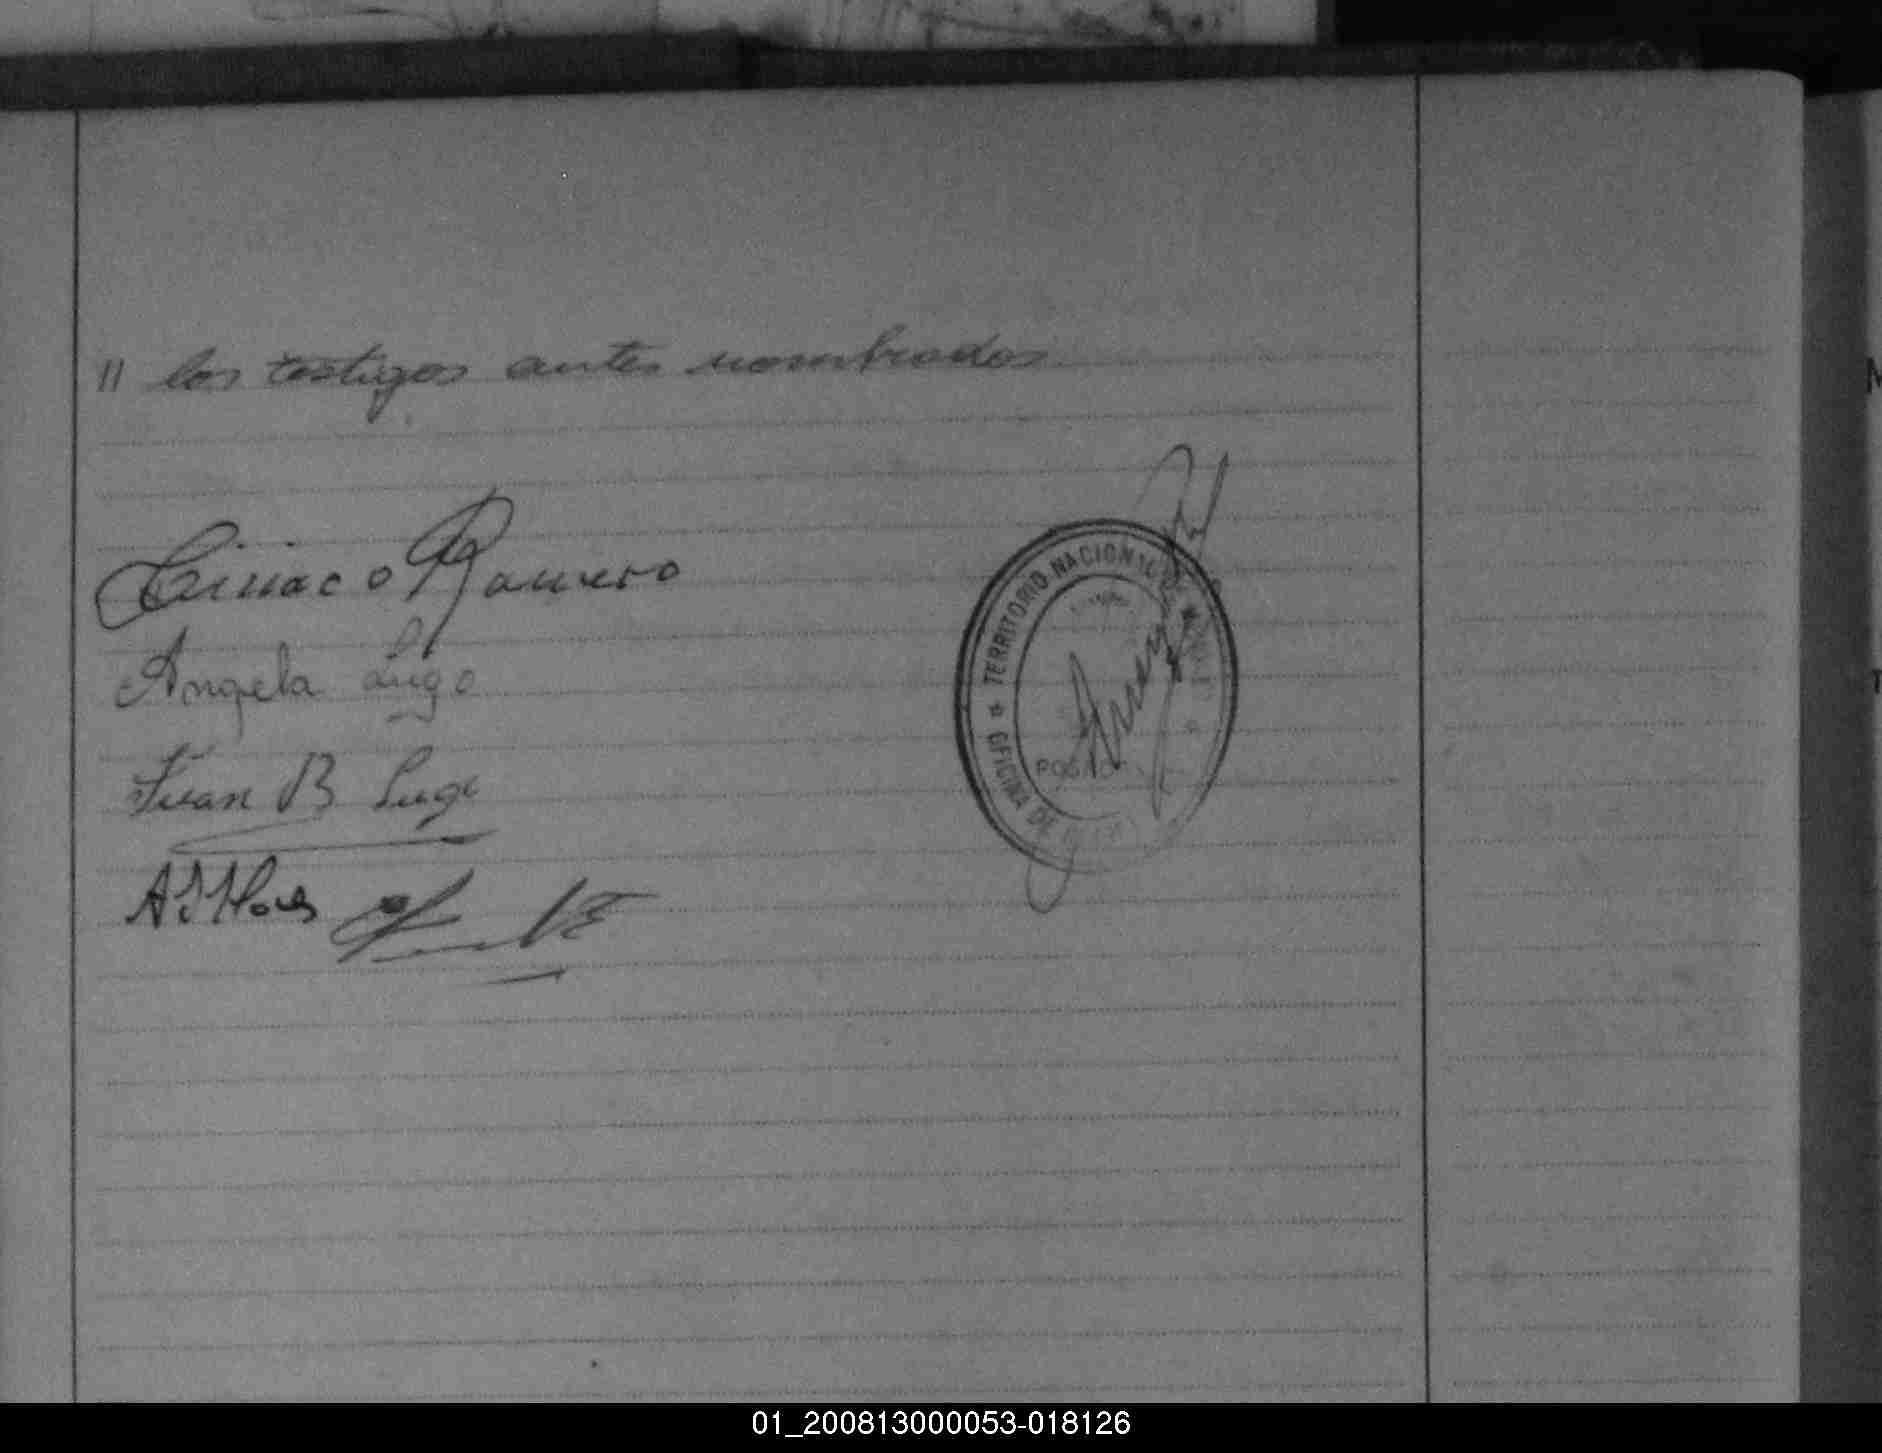 " los testigos antes nombrados
Ciriaco Romero
Angela Lugo
Juan B Lugo
TERRITORIO NACIONAL DE MISIONES
OFICINA DE
POSADAS
01_200813000053-018126